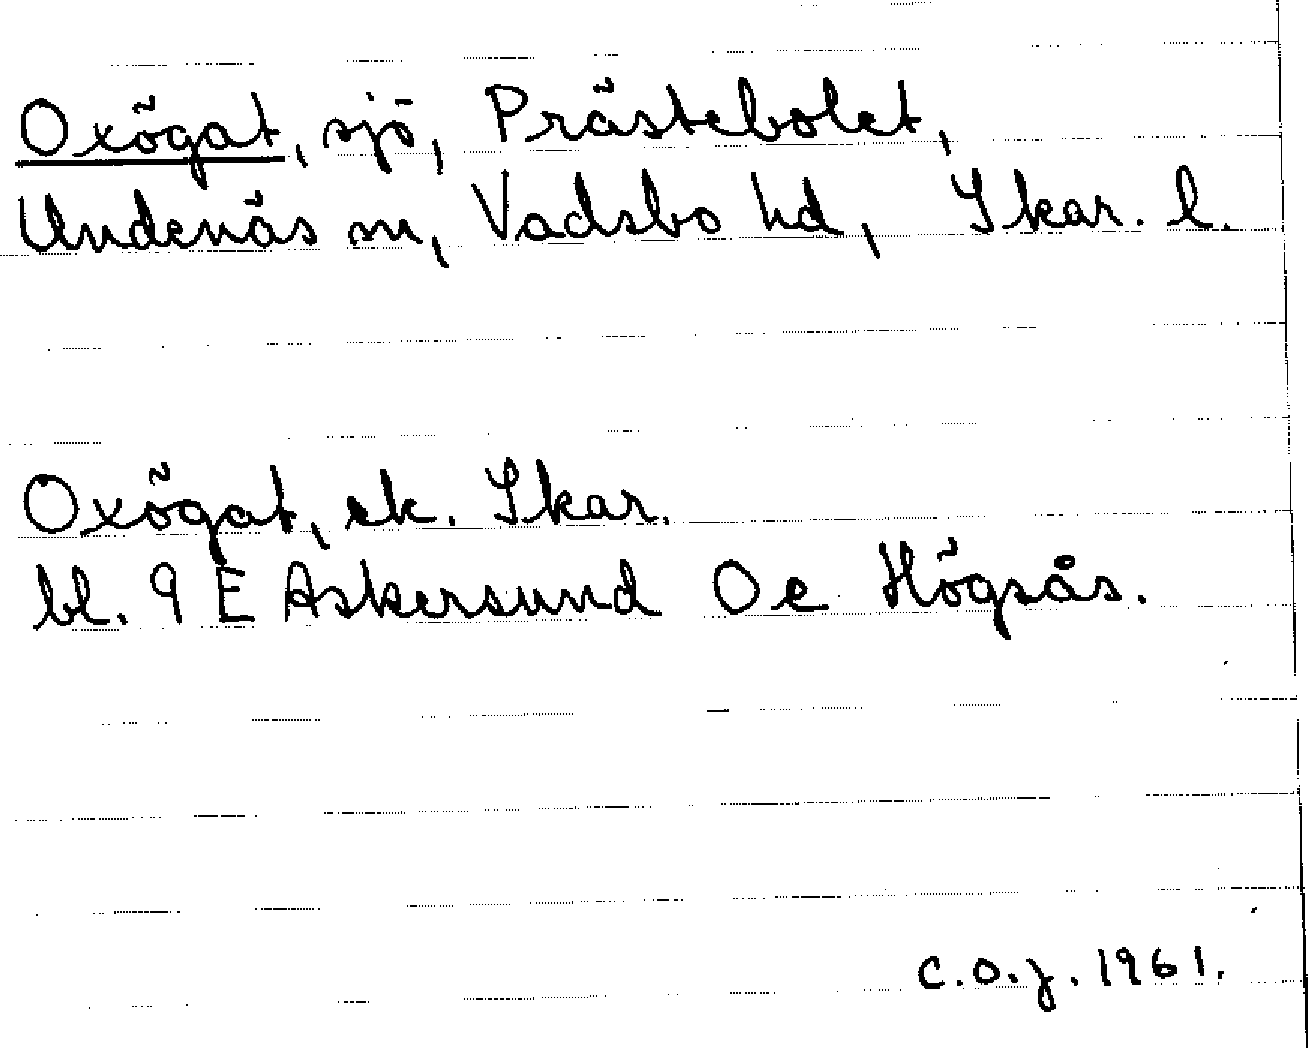 Oxögat, sjö, Prästebolet,
Undenäs sn, Vadsbo hd, Skar. l.
Oxögat, ek. Skar.
bl. 9 E Askersund Oe Högsås.
C.O.J. 1961.